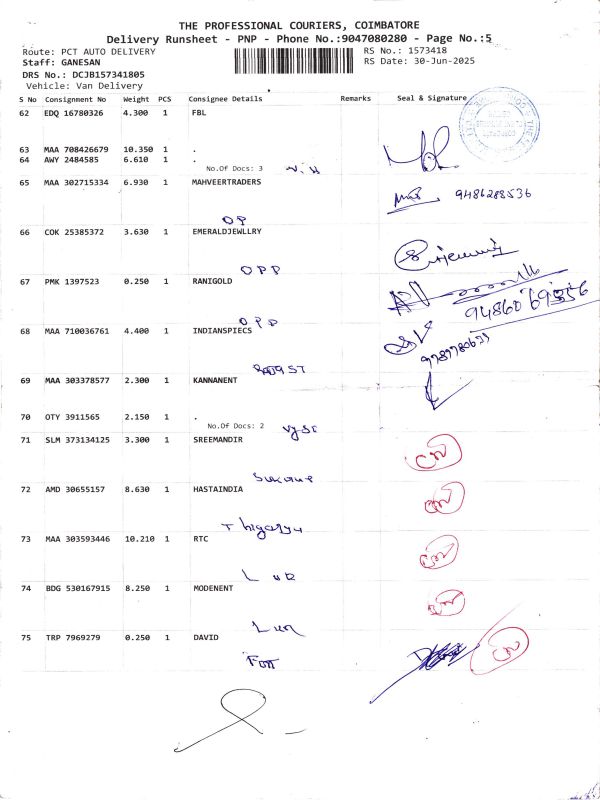 THE PROFESSIONAL COURIERS, COIMBATORE
Delivery Runsheet - PNP - Phone No.:9047080280 - Page No.:5
Route: PCT AUTO DELIVERY RS No.: 1573418
Staff: GANESAN RS Date: 30-Jun-2025
DRS No.: DCJB157341805
Vehicle: Van Delivery
S No Consignment No Weight PCS Consignee Details Remarks Seal & Signature
62 EDQ 16780326 4.300 1 FBL
63 MAA 708426679 10.350 1 .
64 AWY 2484585 6.610 1 .
No.Of Docs: 3
65 MAA 302715334 6.930 1 MAHVEERTRADERS
9486288536
OP
66 COK 25385372 3.630 1 EMERALDJEWLLRY
OPP
67 PMK 1397523 0.250 1 RANIGOLD
OPP
68 MAA 710036761 4.400 1 INDIANSPIECS
69 MAA 303378577 2.300 1 KANNANENT
70 OTY 3911565 2.150 1 .
No.Of Docs: 2
71 SLM 373134125 3.300 1 SREEMANDIR
72 AMD 30655157 8.630 1 HASTAINDIA
73 MAA 303593446 10.210 1 RTC
74 BDG 530167915 8.250 1 MODENENT
75 TRP 7969279 0.250 1 DAVID